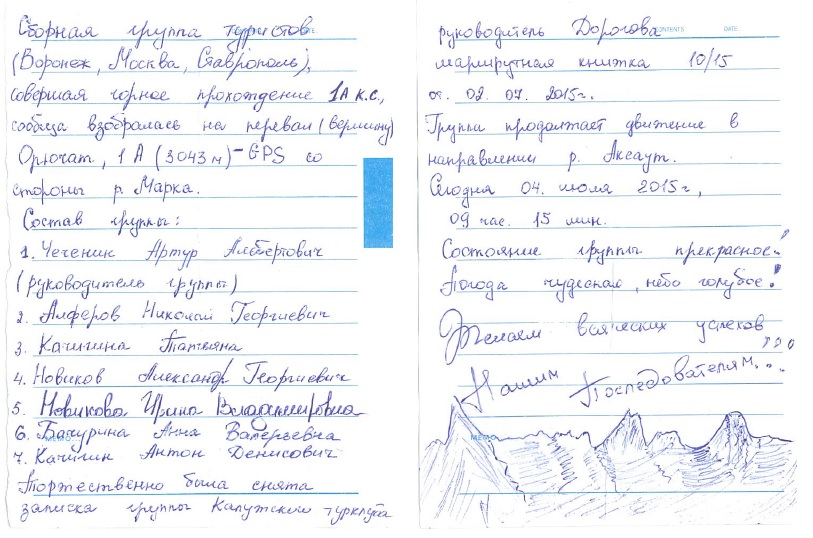 Сборная группа туристов
(Воронеж, Москва, Ставрополь),
совершая горное прохождение 1А к.с.,
сообща взобралась на перевал (вершину)
Орлючат, 1А (3043 м) - GPS со
стороны р. Марка.
Состав группы:
1. Чеченин Артур Альбертович
(руководитель группы)
2. Алферов Николай Георгиевич
3. Качигина Татьяна
4. Новиков Александр Георгиевич
5. Новикова Ирина Владимировна
6. Бачурина Анна Валерьевна
MEMO
7. Качигин Антон Денисович
Торжественно была снята
записка группы Калужского турклуба
CONTENTS: DATE:
руководитель Дорогова
маршрутная книжка 10/15
от. 02. 07. 2015г.
Группа продолжает движение в
направлении р. Аксаут.
Сегодня 04. июля 2015г,
09 час. 15 мин.
Состояние группы прекрасное!
Погода чудесная, небо голубое!
Желаем всяческих успехов
Нашим Последователям...
MEMO